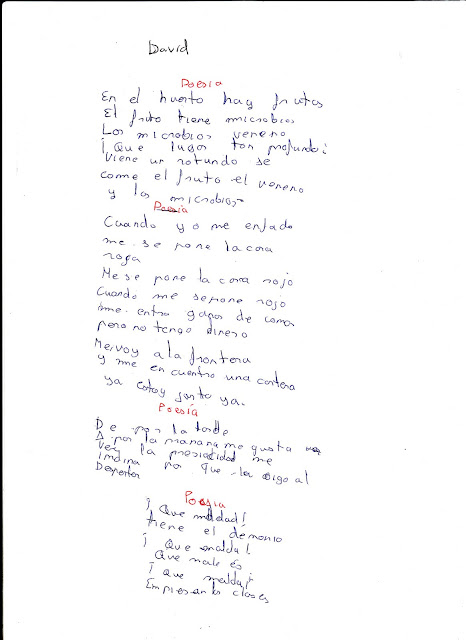 David
Poesia
En el huerto hay frutos
El fruto tiene microbios
Los microbios veneno
¡ Que lugar tan profundo!
Viene un rotundo se
come el fruto el veneno
y los microbios
Poesía
Cuando yo me enfado
me se pone la cara
roga
Me se pone la cara rojo
Cuando me se pone rojo
me entra gapas de comer
pero no tengo dinero
Me voy a la frontera
y me en cuentro una cartera
ya estoy
Poesía
De por la tarde
A por la mañana me gusta
Ver la me
imagina por que la oigo al
Despertar
Poesia
¡ Que maldad!
tiene el demonio
¡ Que malda!
Que malo es
¡ que malda!
Empiesan las clases